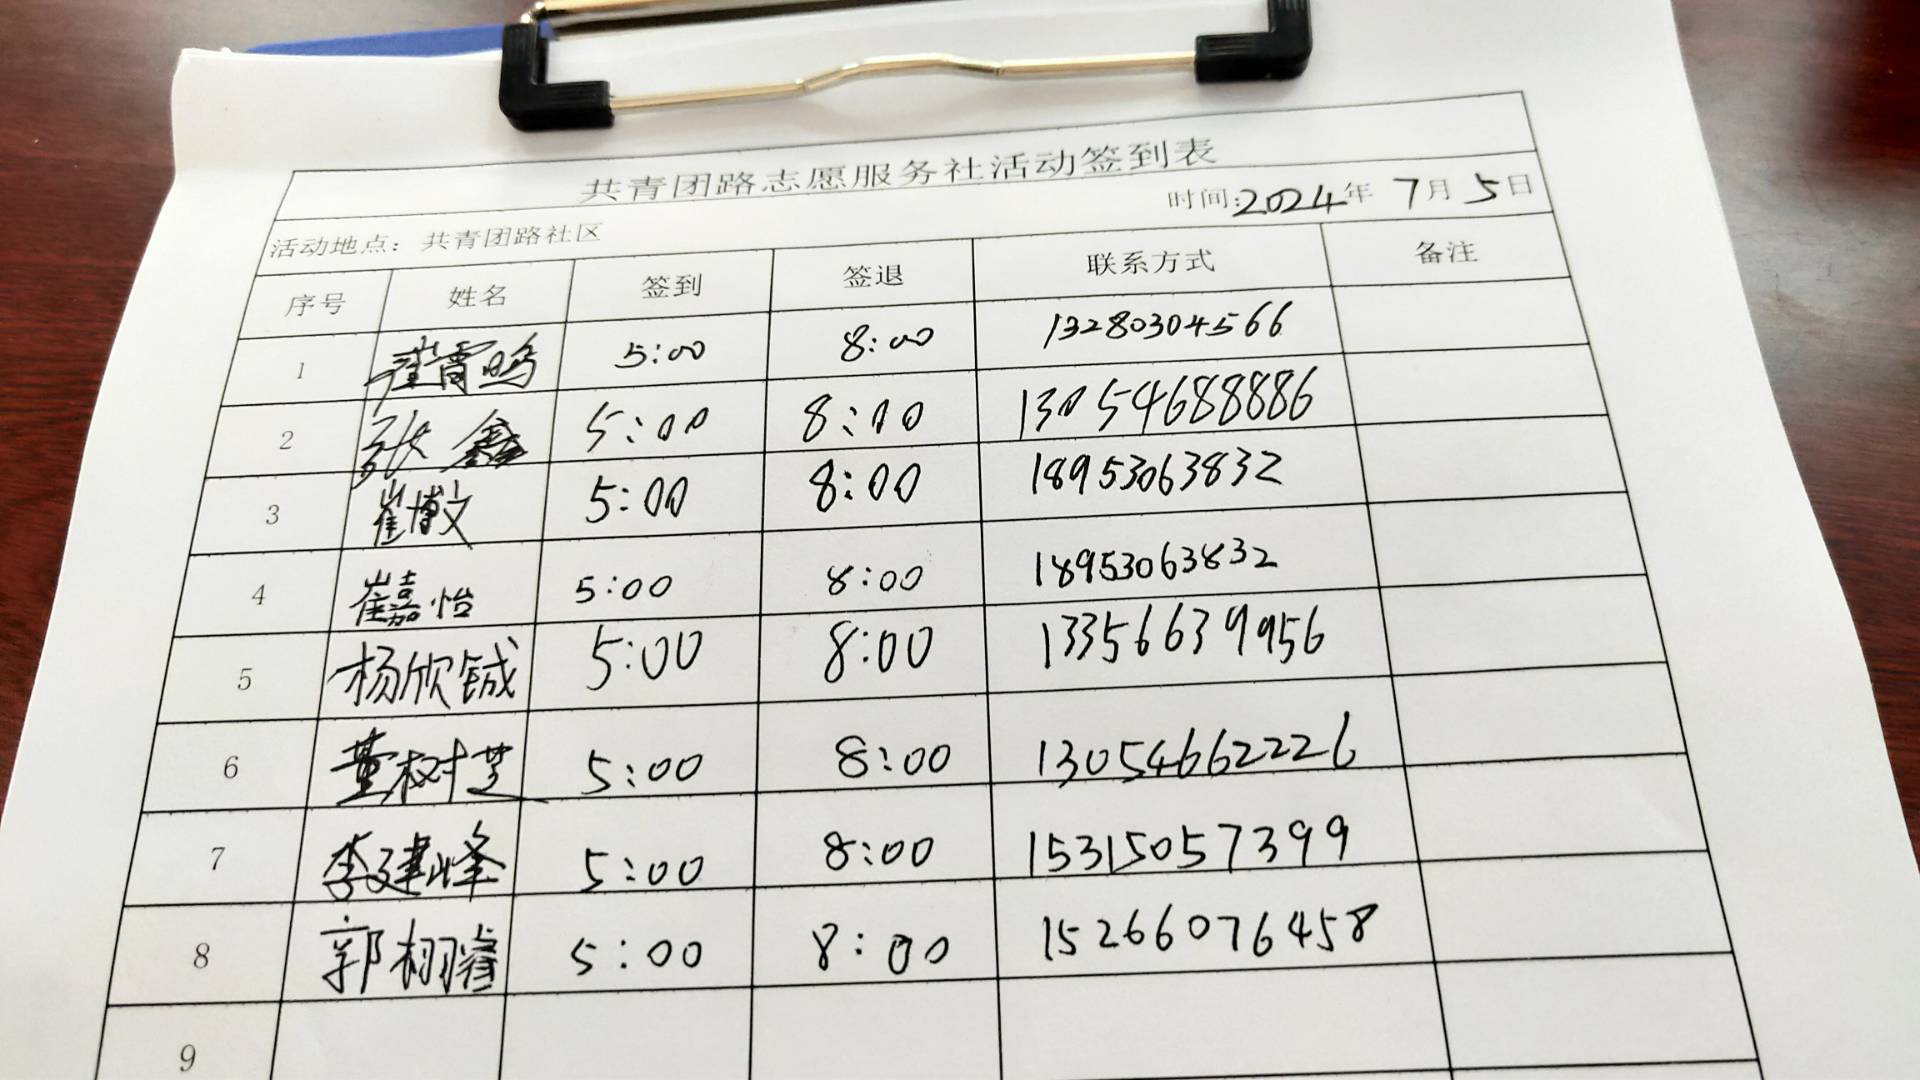 共青团路志愿服务社活动签到表
时间:2024年 7月 5日
活动地点：共青团路社区
序号 姓名 签到 签退 联系方式 备注
1 崔霄鸣 5:00 8:00 13280304566
2 张鑫 5:00 8:00 13054688886
3 崔博文 5:00 8:00 18953063832
4 崔嘉怡 5:00 8:00 18953063832
5 杨欣铖 5:00 8:00 13356639956
6 董树芝 5:00 8:00 13054662226
7 李建峰 5:00 8:00 15315057399
8 郭栩睿 5:00 8:00 15266076458
9